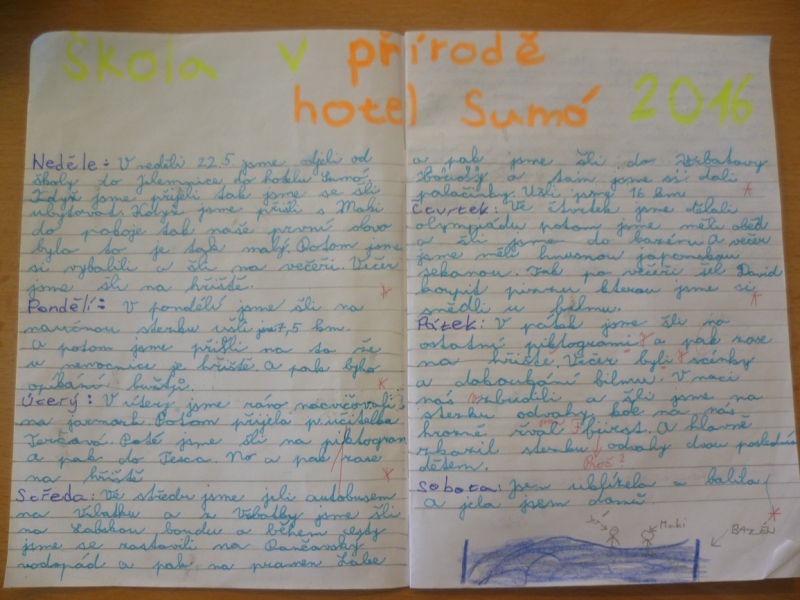 Škola v přírodě
hotel Sumó 2016
Neděle: V neděli 22.5 jsme odjeli od
školy do Jilemnice do hotelu Sumó.
Když jsme přijeli tak jsme se šli
ubytovat. Když jsme přišli s Maki
do pokoje tak naše první slovo
bylo to je tak malý. Potom jsme
si vybalili a šli na večeři. Večer
jsme šli na hřiště.
Pondělí: V pondělí jsme šli na
naučnou stezku ušli js 7,5 km.
A potom jsme přišli na to že
u nemocnice je hřiště. A pak bylo
opíkání buřtů.
Úterý: V úterý jsme ráno nacvičovali
na jarmark. Potom přijela p.učitelka
Terčová. Poté jsme šli na piktogram
a pak do Tesca. No a pak zase
na hřiště
Středa: Ve středu jsme jeli autobusem
na Vrbatku a z Vrbatky jsme šli
na Labskou boudu a během cesty
jsme se zastavili na Pančavský
vodopád a pak na pramen Labe
a pak jsme šli do Vrbatovy
boudy a tam jsme si dali
palačinky. Ušli jsme 16 km
Čtvrtek: Ve čtvrtek jsme dělali
olympiádu potom jsme měli oběd
a šli jsme do bazénu. A večer
jsme měli hnusnou japonskou
sekanou. Tak po večeři šel David
koupit pizzu kterou jsme si
snědli u filmu.
Pátek: V pátek jsme šli na
ostatní piktogrami a pak zase
na hřiště. Večer byli scénky
a dokoukání filmu. V noci
nás vzbudili a šli jsme na
stezku odvahy, kde na nás
hrozně řval first. A hlavně
zkazil stezku odvahy dvou posledním
dětem.
Proč?
Sobota: Jsem uklízela a balila
A jela jsem domů.
já
Maki
BAZÉN